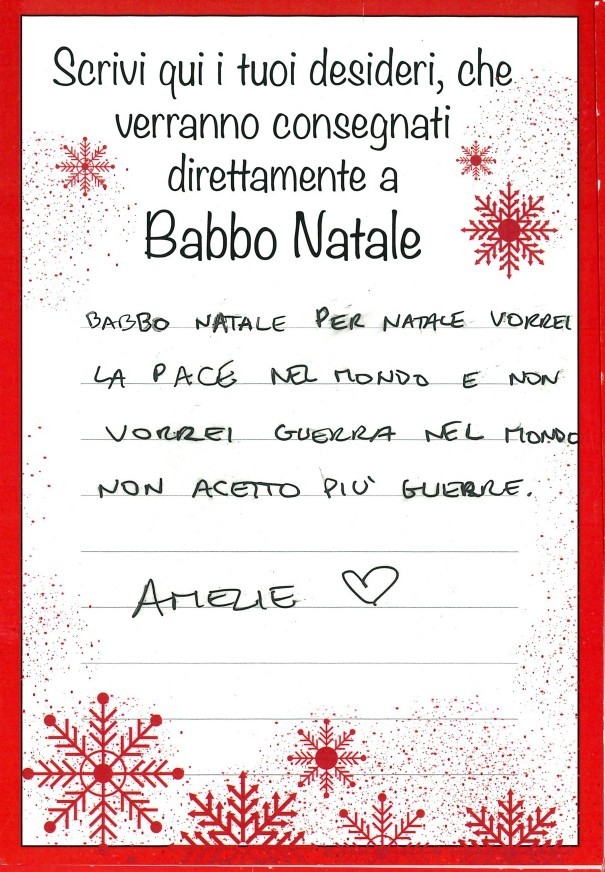 Scrivi qui i tuoi desideri, che
verranno consegnati
direttamente a
Babbo Natale
BABBO NATALE PER NATALE VORREI
LA PACE NEL MONDO E NON
VORREI GUERRA NEL MONDO
NON ACETTO PIÙ GUERRE.
AMELIE